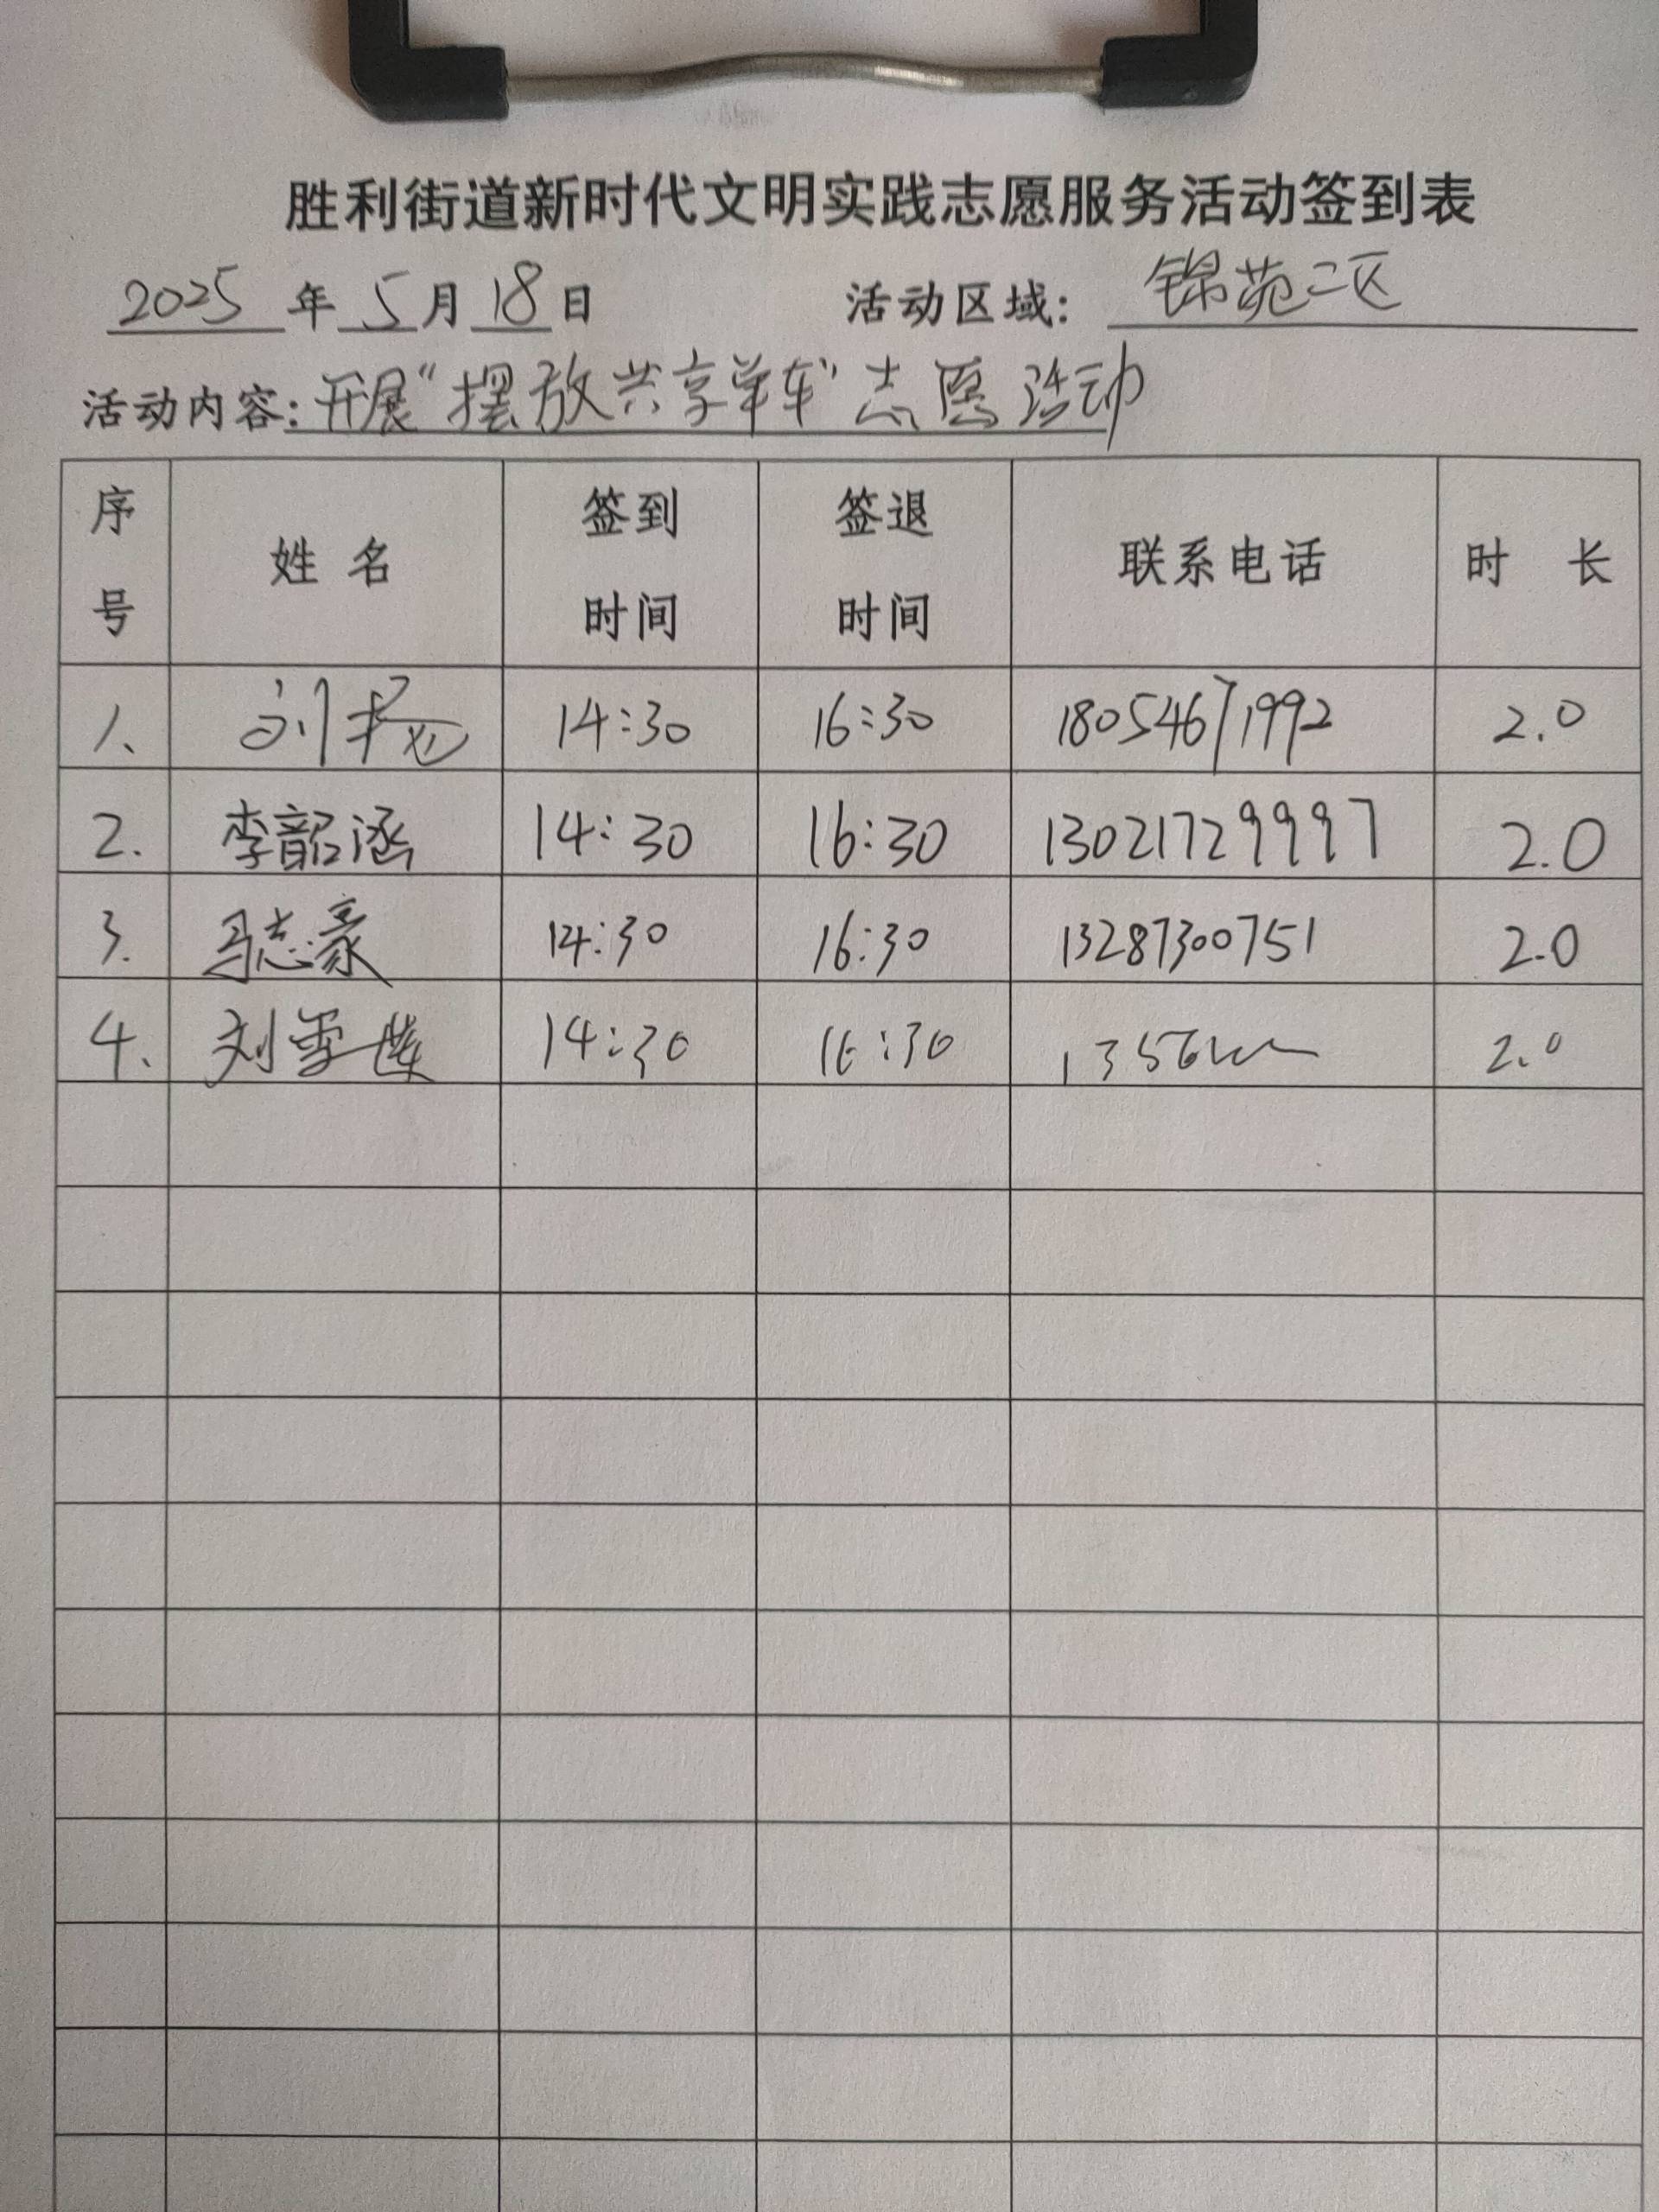 胜利街道新时代文明实践志愿服务活动签到表
2025年5月18日 活动区域：锦苑二区
活动内容：开展“摆放共享单车”志愿活动
序号 姓名 签到时间 签退时间 联系电话 时长
1、 刘 14:30 16:30 18054671992 2.0
2. 李韶涵 14:30 16:30 13021729997 2.0
3. 马志豪 14:30 16:30 13287300751 2.0
4、 刘雪莲 14:30 16:30 1356 2.0